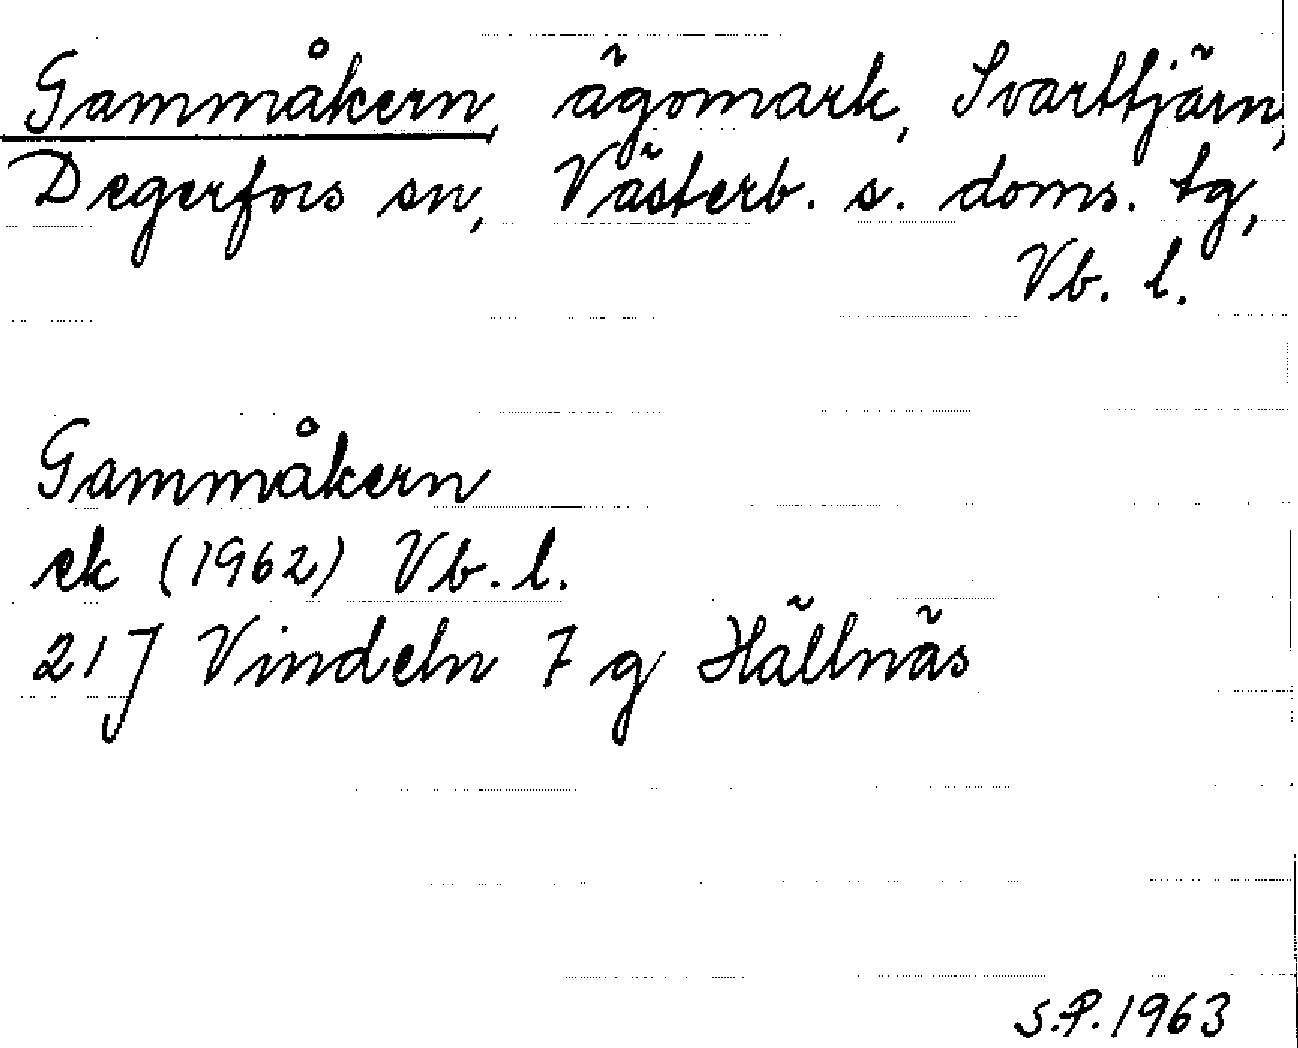 Gammåkern, ägomark, Svarttjärn,
Degerfors sn, Västerb. s. doms. tg,
Vb. l.
Gammåkern
ek (1962) Vb. l.
21J Vindeln 7 g Hällnäs
S.P. 1963